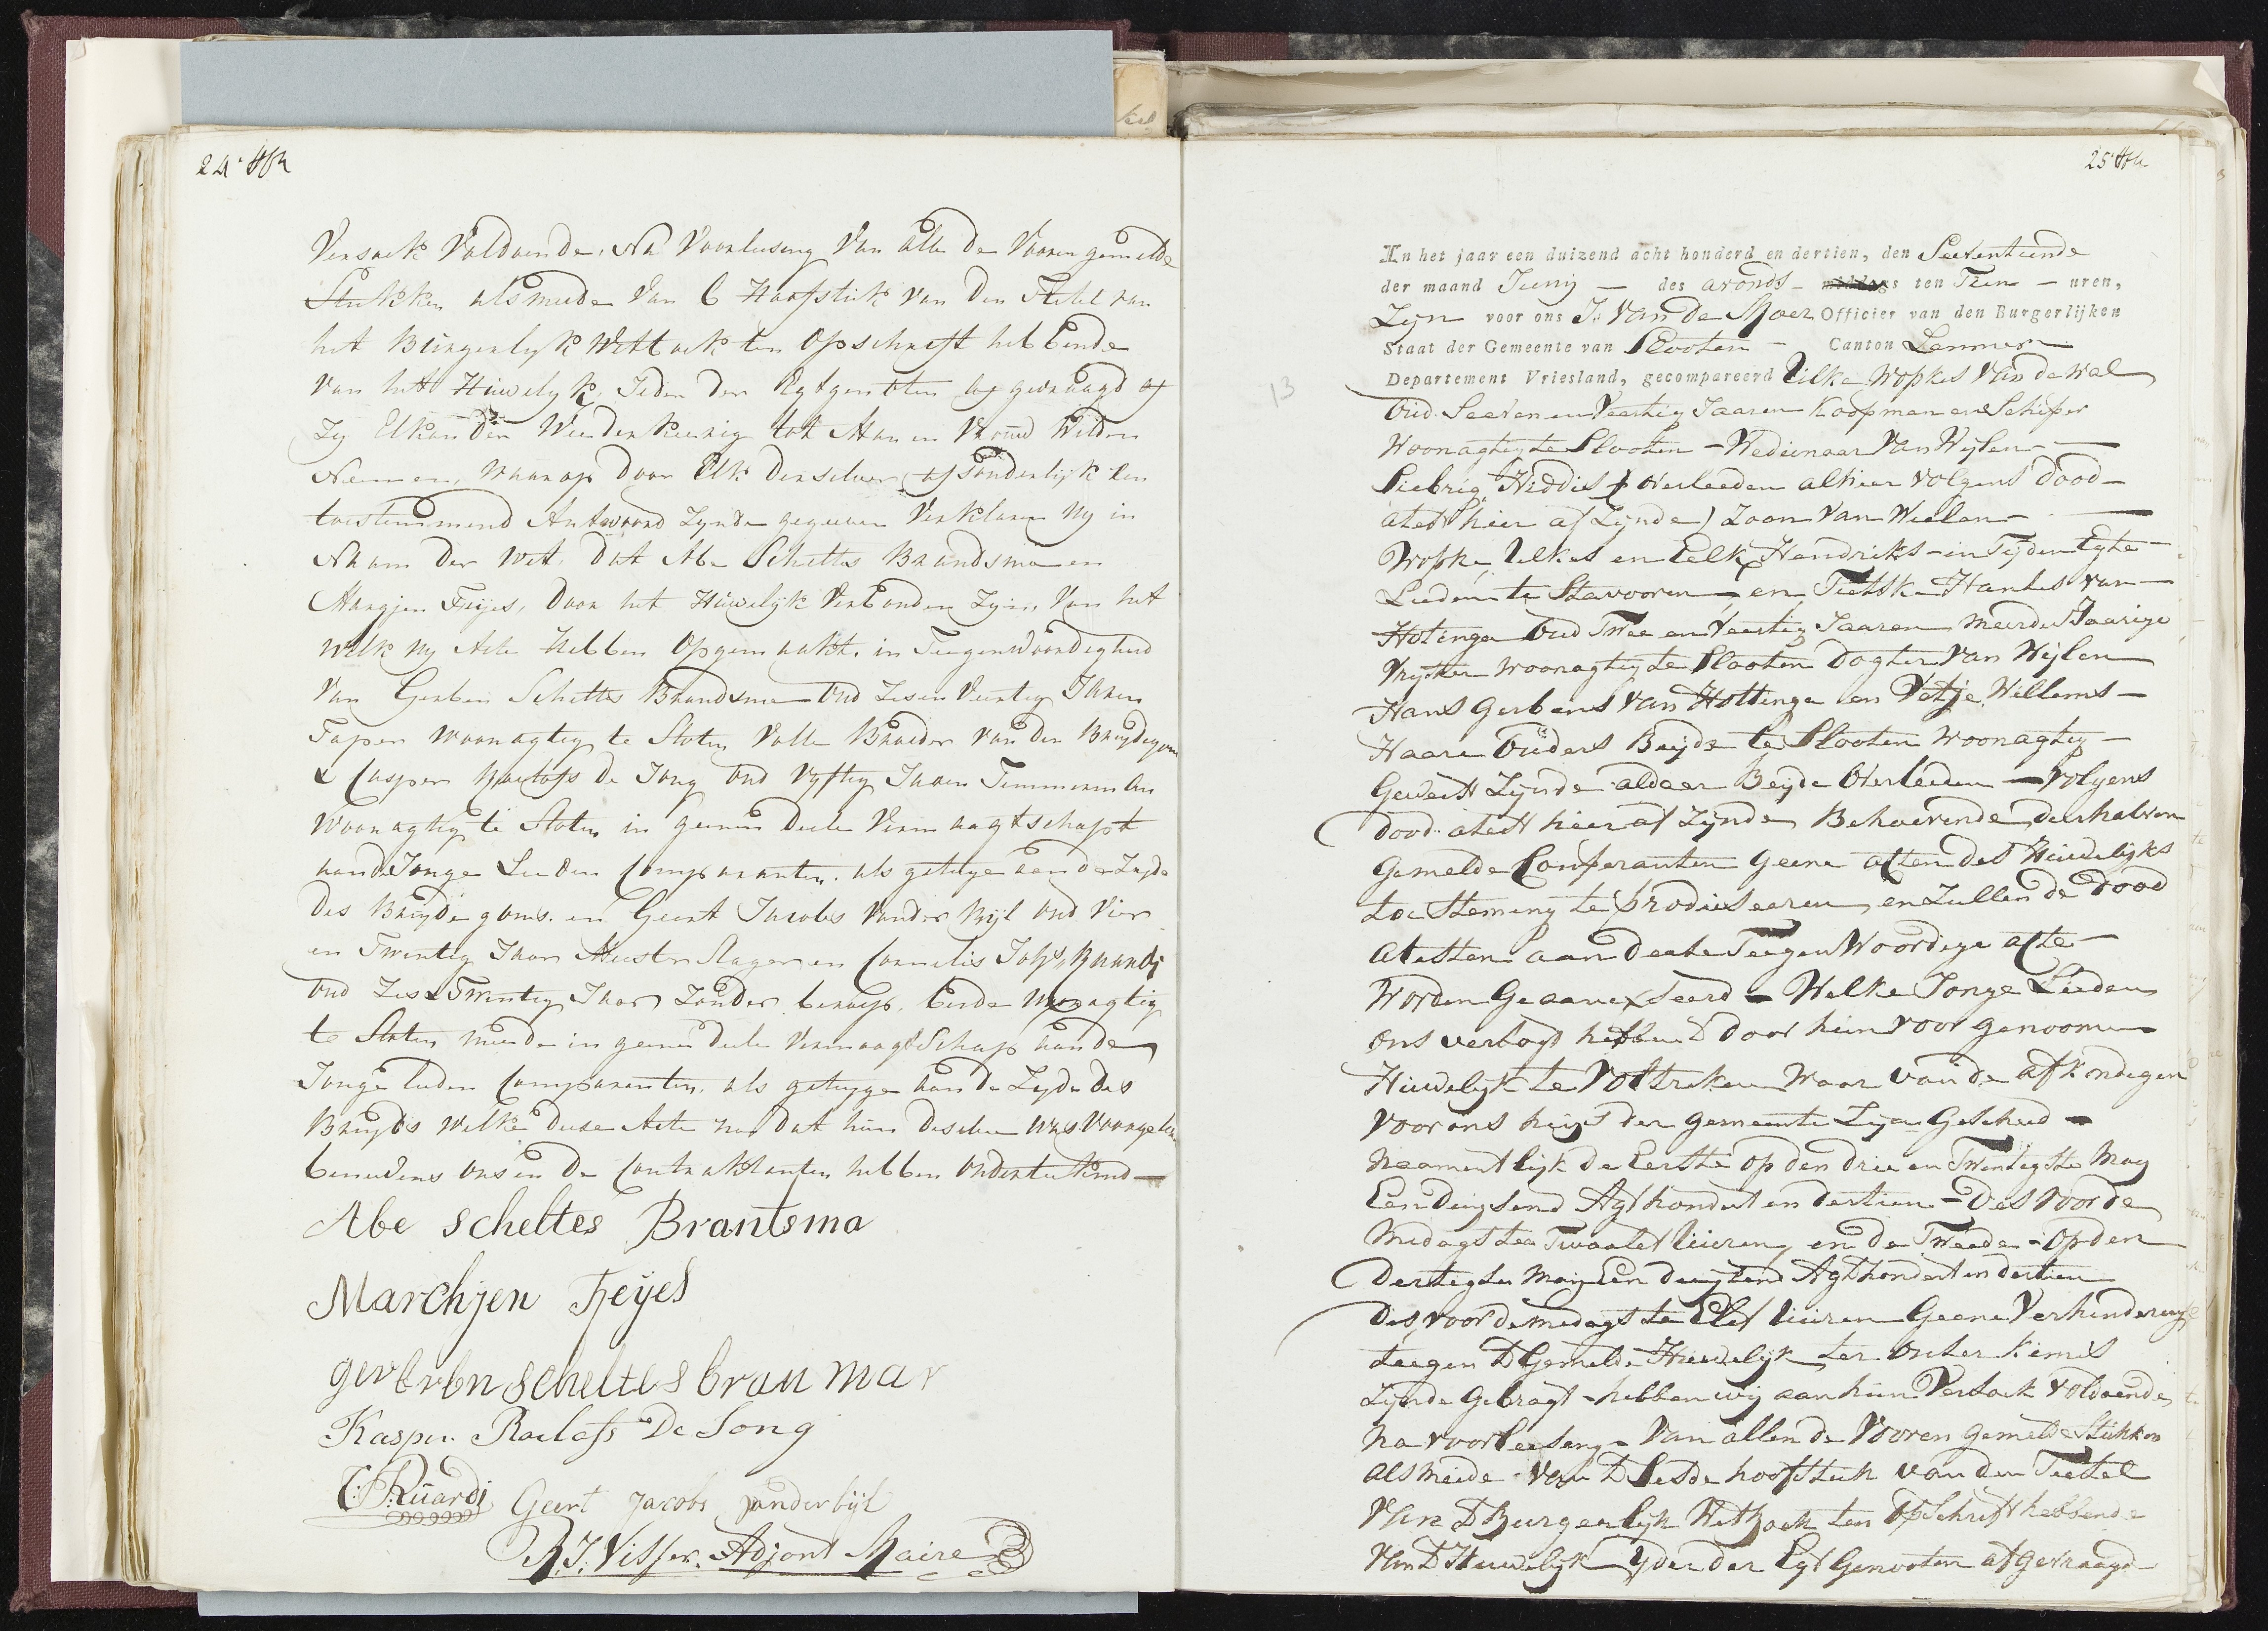 24.
Versoek Voldoende, Na Voorleesing Van alle de Vooren gemelde
Stukken alsmeede Van 6 Hoofstuk van den Tietel van
het Burgerlyk Wetboek ten Opschrift hebbende
van het Huwelyk, Ieder der Egtgenoten afgevraagd of
Zy Elkander Weederkeerig tot Man en Vrouw Wilden
Neemen, waarop door Elk derselver afsonderlijk een
toestemmend Antwoord Zynde gegeeven Verklaren Wy in
Naam der Wet, dat Abe Scheltes Brandsma en
Margjen Feijes, door het Huwelijk Verbonden Zyn, Van het
welk wy Acte Hebben Opgemaakt, in Teegenwoordigheid
Van Gerben Scheltes Brandsma Oud Zes en Veertig Jaren
Taper Woonagtig te Sloten Volle Broeder van den Bruydegom
& Casper Roelofs de Jong Oud Vyftig Jaren Timmerman
Woonagtig te Sloten in geenen deele Vermaagtschapt
aan de Jonge Lieden Comparanten, als getuige aan de Zyde
des Bruydegoms. en Geert Jacobs Vander Bijl Oud Vier
en Twintig Jaar Meester Slager en Cornelis
Oud Zes & Twintig Jaar Zonder beroep, beide Woonagtig
te Sloten meede in geenen deele Vermaagdschap aan de
Jonge lieden Comparenten, als getuyge aan de Zyde des
Bruyds welke deese Acte na dat hun deselve was Voorgeleesen
benevens ons en de Contraktanten hebben Onderteekend
Abe Scheltes Brantsma
Marchjen Feijes
gerberbn scheltes bran mar
Kasper Roelofs De Jong
Ruardi Geert Jacobs vanderbijl
R. J. Visser. Adjont Maire
25
13
In het jaar een duizend acht honderd en dertien, den Seeventiende
der maand Juny — des avonds — middags ten Tien — uren,
Zyn voor ons J. Van de Moer Officier van den Burgerlijken
Staat der Gemeente van Slooten — Canton Lemmer
Departement Vriesland, gecompareerd Uilke Wopkes Van de Wal
Oud Seeven en Veertig Jaaren Koopman en Schiper
Woonagtig te Slooten — Weduwnaar Van Wylen
Siebrig Hiddes (overleeden alhier volgens dood
atest hier af Zynde) Zoon Van Wielen
Wopke Uilkes en Eelk Hendriks — in Tyden Egte
Lieden te Stavooren — en Tietske Hanses van
Hotinga Oud Twee en Veertig Jaaren meerder Jaarige
Vryster woonagtig te Slooten Dogter Van Wylen
Hans Gerbens Van Hottinga en Vetje Willems —
Haare Ouders Beyde te Slooten woonagtig —
Geweest Zynde aldaar Beyde Overleeden — Volgens
dood atest hier af Zynde Behoevende derhalven
Gemelde Comparanten geene acten des Huwelijks
toe Steming te produseeren, en Zullen de dood
atesten aan deese Teegen Woordige acte
Worden Geannexseerd — Welke Jonge Lieden
ons versogt hebben D door hun voor genoomen
Huwelyk te Voltreken Waar van de afkondigen
voor ons huys der gemeente Zyn Geschied —
naamentlijk de Eerste op den drie en Twintigste May
Een duysend Agt hondert en dertien — des voor de
Midags ten Twaalef Uuren, en de Tweede — op den
Dertigste May Een duysend Agt hondert en dertien
des voor de midags te Elef Uuren Geene Verhindering
teegen D Gemelde Huwelyk ter onser kennis
Zynde Gebragt — hebben wij aan hun Versoek Voldoende
na voorleesing — Van allen de Vooren gemelde Stukken
als meede — Van D Sesde hoofstuk van den Tietel
Van D Burgerlyk Wetboek ten Opschrift hebbende
Van D Huwelyk Yder der Egt Genooten afgevraagd